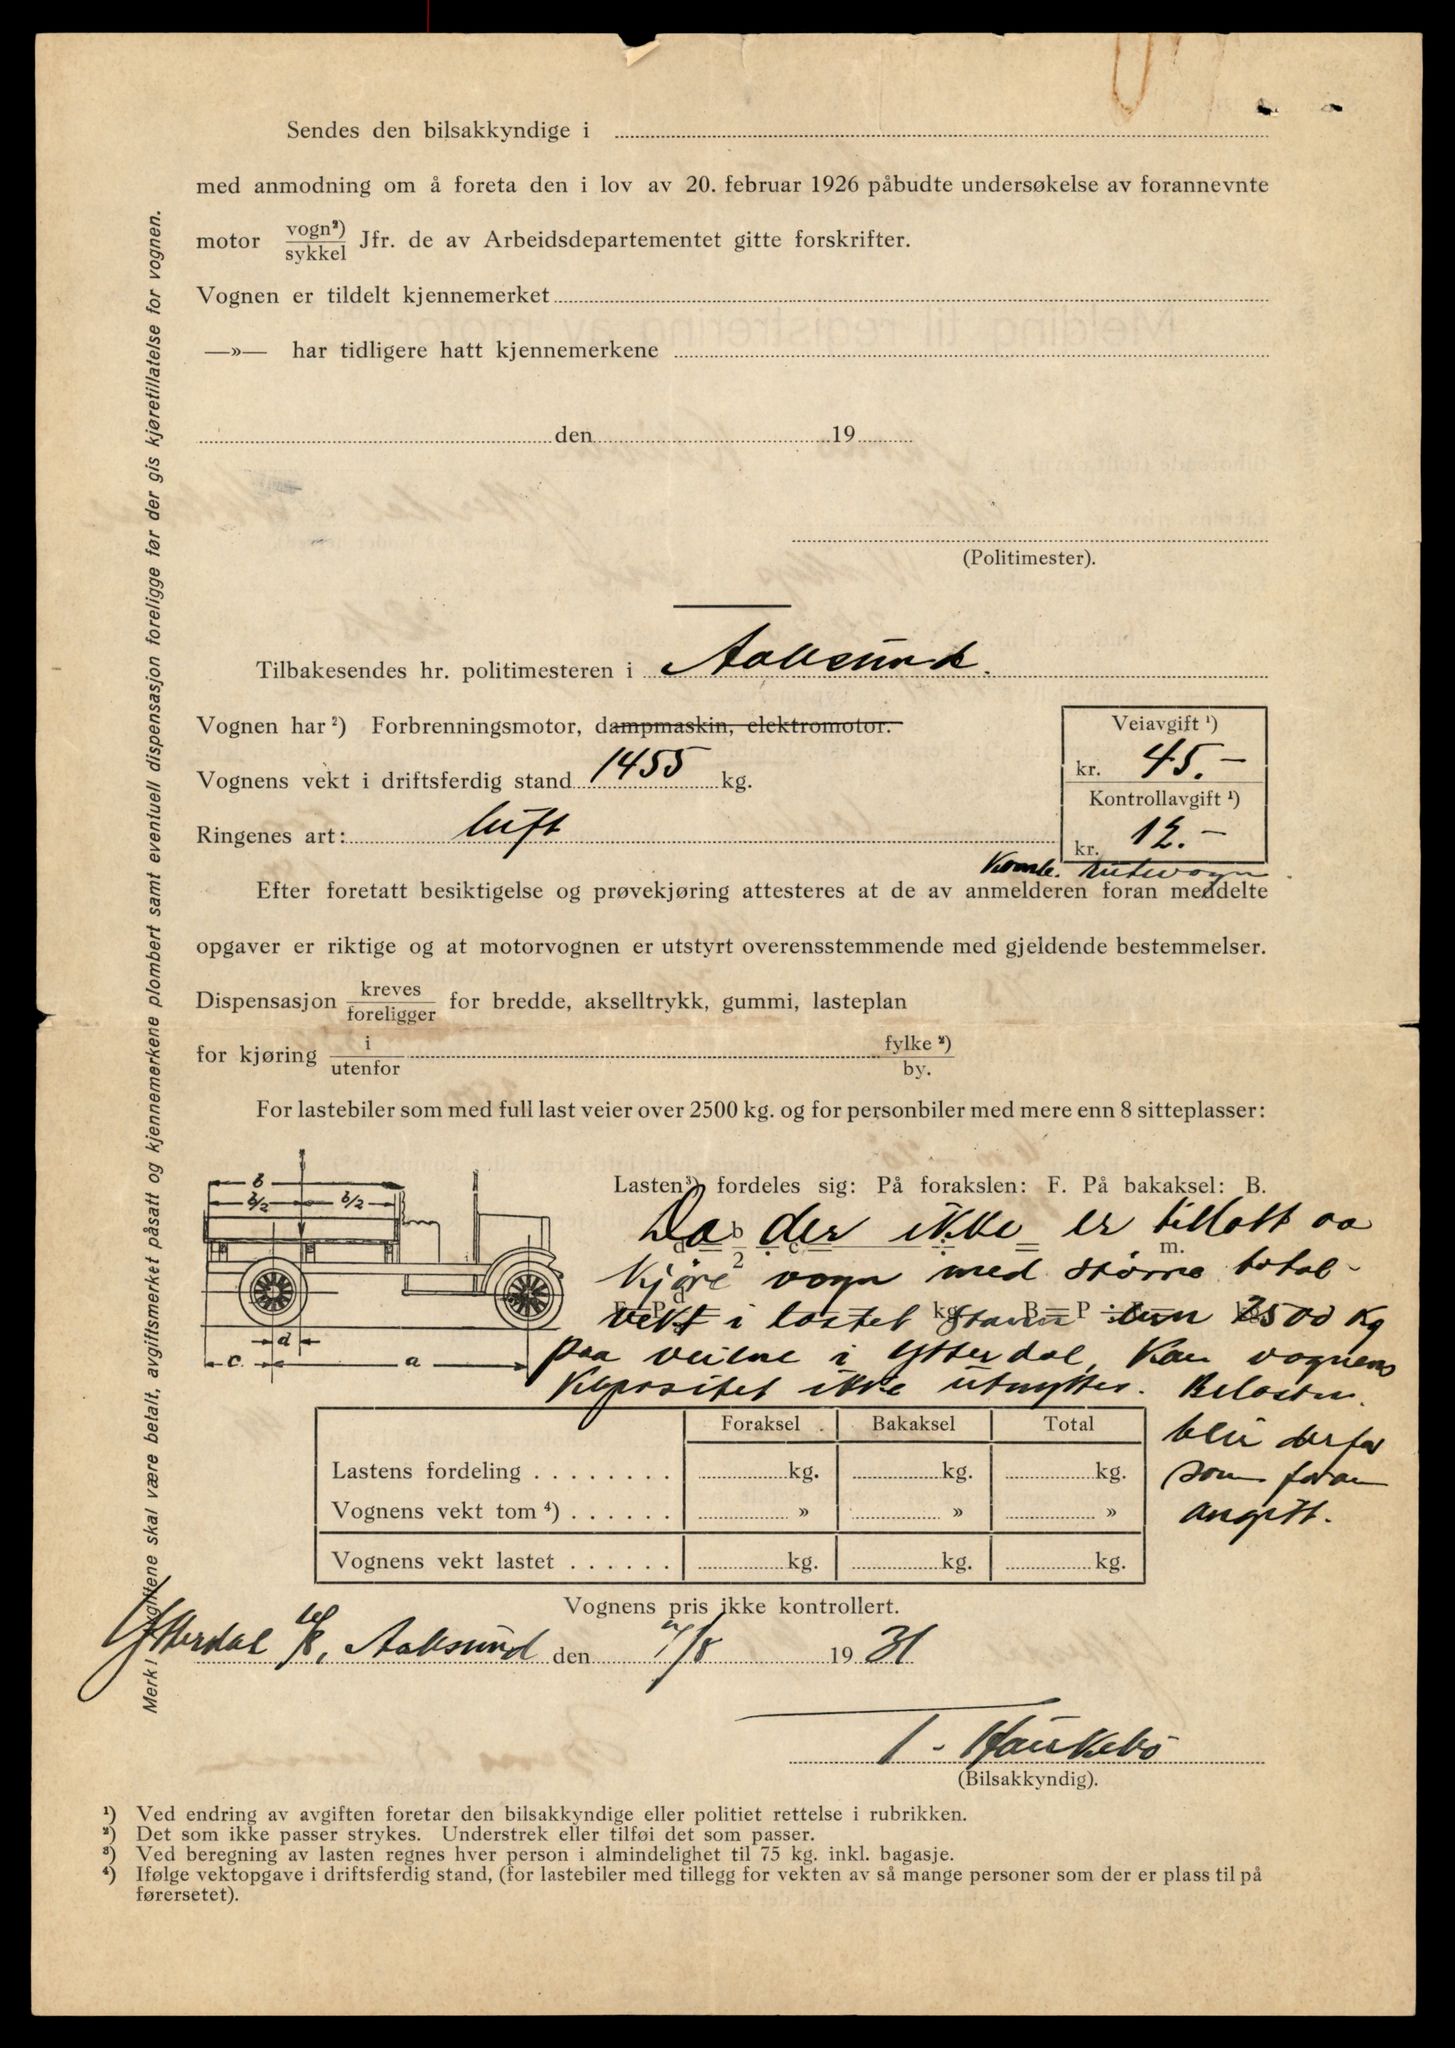 Sendes den bilsakkyndige i
med anmodning om å foreta den i lov av 20. februar 1926 påbudte undersøkelse av forannevnte
motor vogn²)/sykkel Jfr. de av Arbeidsdepartementet gitte forskrifter.
Vognen er tildelt kjennemerket
—»— har tidligere hatt kjennemerkene
den 19
(Politimester).
Tilbakesendes hr. politimesteren i Aalesund.
Vognen har ²) Forbrenningsmotor, dampmaskin, elektromotor.
Veiavgift ¹)
kr. 45.-
Vognens vekt i driftsferdig stand 1455 kg.
Kontrollavgift ¹)
kr. 12.-
Ringenes art: luft
Komb. rutevogn
Efter foretatt besiktigelse og prøvekjøring attesteres at de av anmelderen foran meddelte
opgaver er riktige og at motorvognen er utstyrt overensstemmende med gjeldende bestemmelser.
Dispensasjon kreves/foreligger for bredde, akselltrykk, gummi, lasteplan
for kjøring i/utenfor fylke ²)/by.
For lastebiler som med full last veier over 2500 kg. og for personbiler med mere enn 8 sitteplasser:
b
b/2 b/2
c d a
Lasten³) fordeles sig: På forakslen: F. På bakaksel: B.
Da der ikke er tillatt aa
kjøre vogn med større total-
vekt i lastet stann enn 2500 kg
paa veiene i Ytterdal, kan vognens
kapasitet ikke utnyttes. Belasten.
blir derfor
som foran
angitt.
Foraksel Bakaksel Total
Lastens fordeling . . . . . . . . kg. kg. kg.
Vognens vekt tom ⁴) . . . . . . » » »
Vognens vekt lastet . . . . . . kg. kg. kg.
Vognens pris ikke kontrollert.
Ytterdal, Aalesund den 7/8 1931
T. Haukebø
(Bilsakkyndig).
¹) Ved endring av avgiften foretar den bilsakkyndige eller politiet rettelse i rubrikken.
²) Det som ikke passer strykes. Understrek eller tilføi det som passer.
³) Ved beregning av lasten regnes hver person i almindelighet til 75 kg. inkl. bagasje.
⁴) Ifølge vektopgave i driftsferdig stand, (for lastebiler med tillegg for vekten av så mange personer som der er plass til på
førersetet).
Merk! Avgiftene skal være betalt, avgiftsmerket påsatt og kjennemerkene plombert samt eventuell dispensasjon foreligge før der gis kjøretillatelse for vognen.